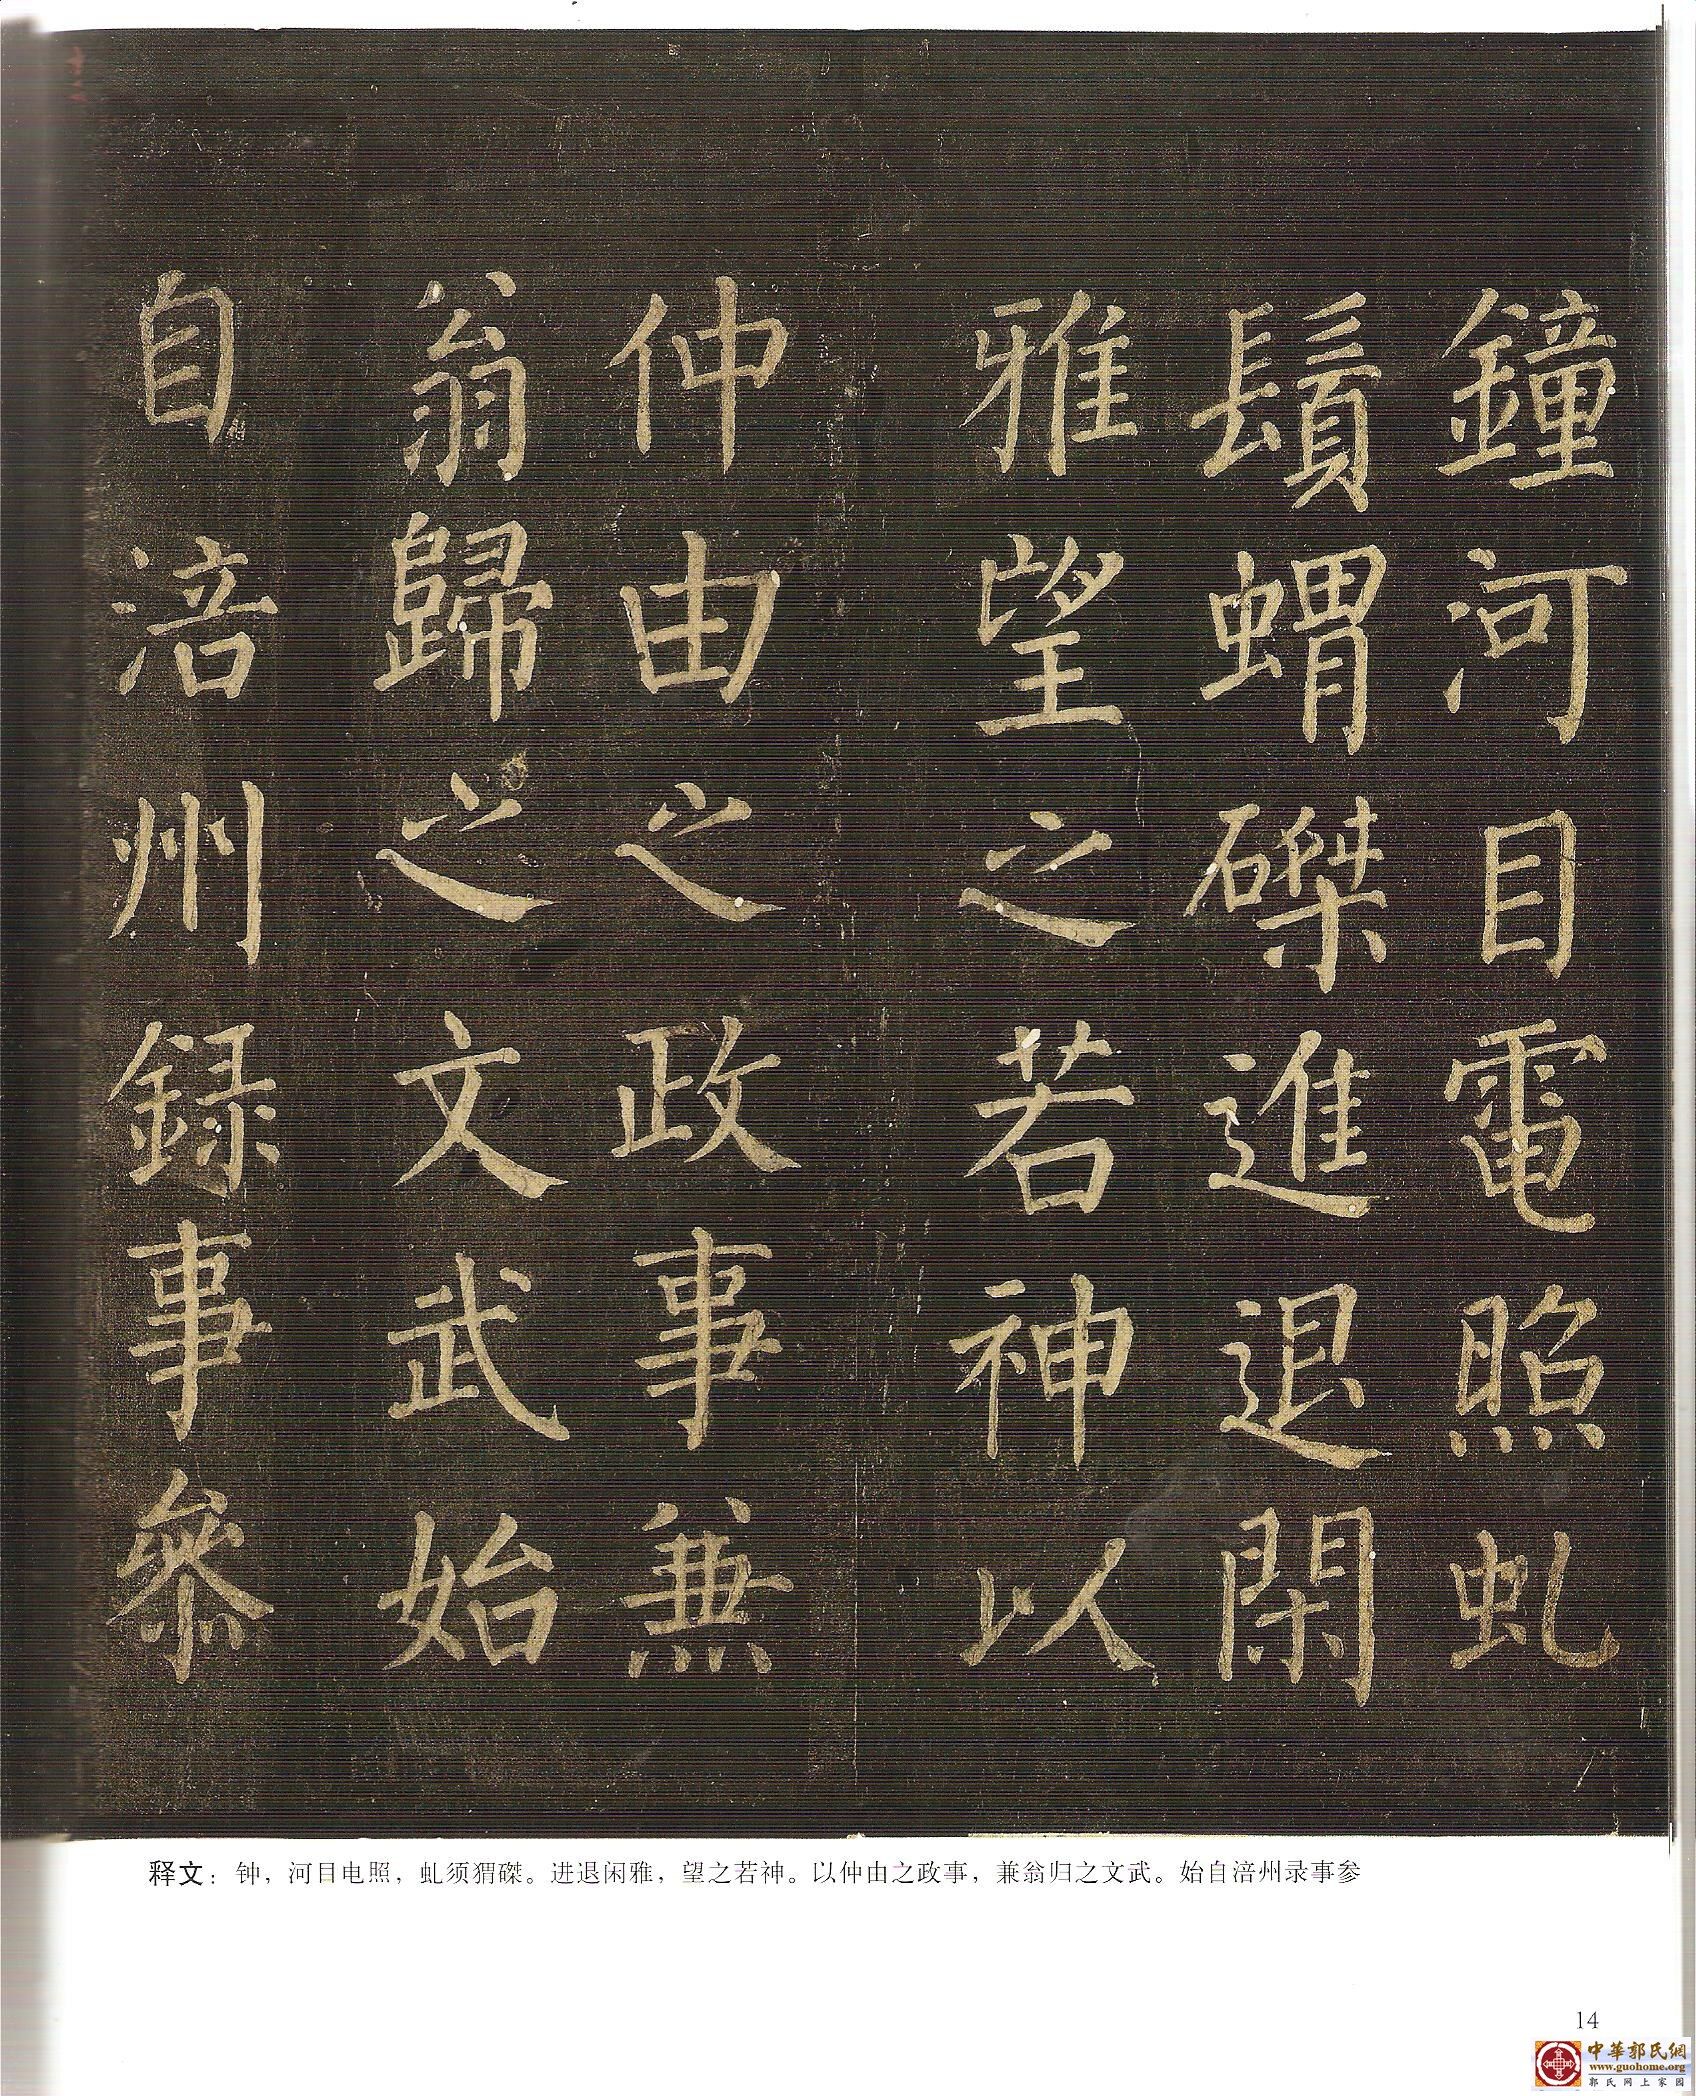 鐘河目電照虬
鬚蝟磔進退閑
雅望之若神以
仲由之政事兼
翁歸之文武始
自涪州録事參
释文：钟，河目电照，虬须猬磔。进退闲雅，望之若神。以仲由之政事，兼翁归之文武。始自涪州录事参
14
中華郭氏網
www.guohome.org
郭氏网上家园